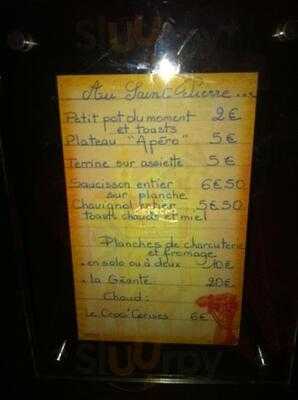 Au Saint Pierre...
Petit pot du moment 2€
et toasts
Plateau "Apéro" 5€
Terrine sur assiette 5€
Saucisson entier 6€50
sur planche
Chavignol entier 5€50
toasts chauds et miel
Planches de charcuterie
et fromage
. en solo ou à deux 10€
. la Géante 20€
Chaud :
Le Croq'Cerises 6€